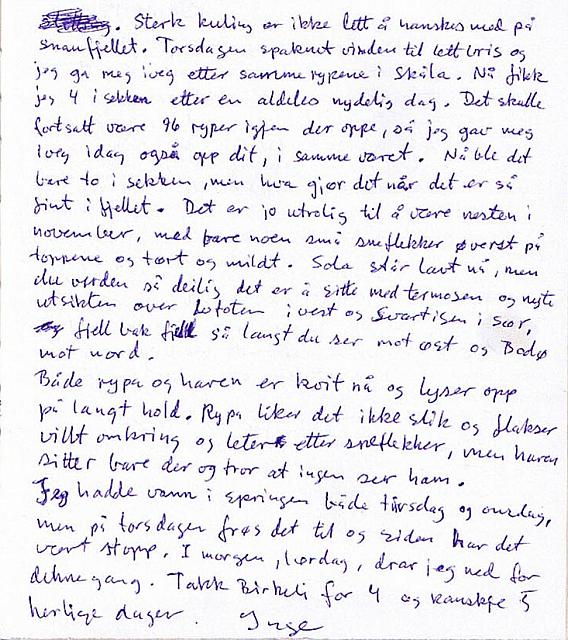 . Sterk kuling er ikke lett å hanskes med på
snaufjellet. Torsdagen spaknet vinden til lett bris og
jeg ga meg iveg etter samme rypene i Skåla. Nå fikk
jeg 4 i sekken etter en aldeles nydelig dag. Det skulle
fortsatt være 96 ryper igjen der oppe, så jeg gav meg
iveg idag også opp dit, i samme været. Nå ble det
bare to i sekken, men hva gjør det når det er så
fint i fjellet. Det er jo utrolig til å være nesten i
november, med bare noen små sneflekker øverst på
toppene og tørt og mildt. Sola står lavt nå, men
du verden så deilig det er å sitte med termosen og nyte
utsikten over Lofoten i vest og Svartisen i sør,
fjell bak fjell så langt du ser mot øst og Bodø
mot nord.
Både rypa og haren er kvit nå og lyser opp
på langt hold. Rypa liker det ikke slik og flakser
vilt omkring og leter etter sneflekker, men haren
sitter bare der og tror at ingen ser ham.
Jeg hadde vann i springen både tirsdag og onsdag,
men på torsdagen frøs det til og siden har det
vært stopp. I morgen, lørdag, drar jeg ned for
denne gang. Takk Birkeli for 4 og kanskje 5
herlige dager. Inge